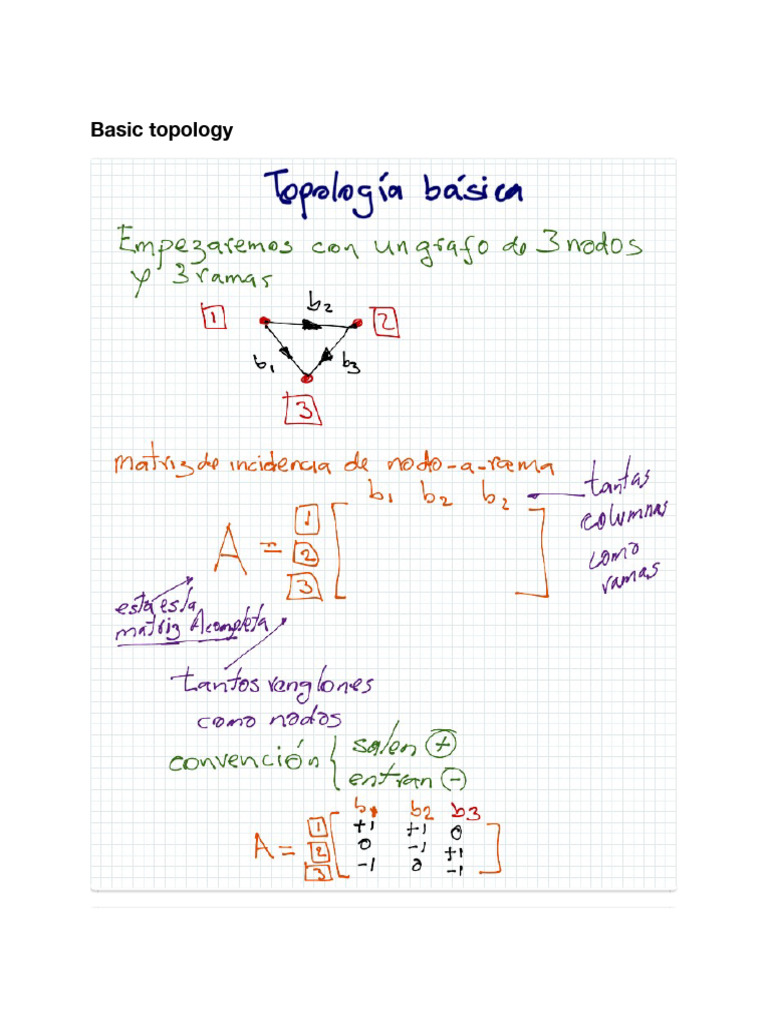 Basic topology
Topología básica
Empezaremos con un grafo de 3 nodos
y 3 ramas
1 b2 2
b1 b3
3
matriz de incidencia de nodo-a-rama
b1 b2 b2
tantas
columnas
como
ramas
A = 1
2
3
esta es la
matriz A completa
tantos renglones
como nodos
convención { salen (+)
entran (-)
b1 b2 b3
1 +1 +1 0
A = 2 0 -1 +1
3 -1 0 -1